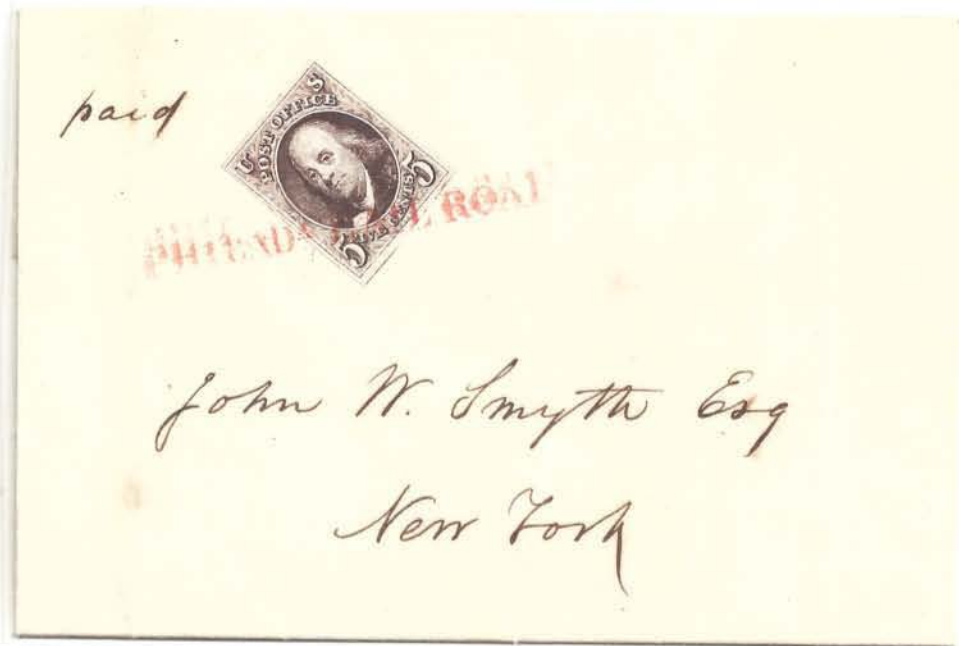 paid
U S
POST OFFICE
5 FIVE CENTS 5
RAIL ROAD
John W. Smyth Esq
New York